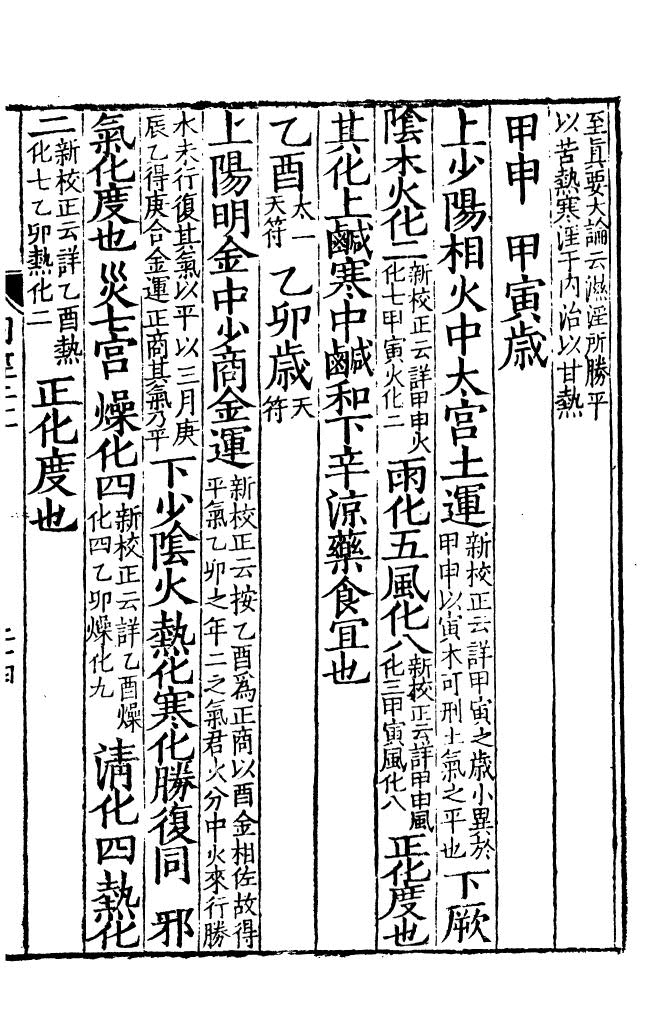 至真要大論云濕淫所勝平
以苦熱寒淫于内治以甘熱
甲申　甲寅歲
上少陽相火中太宮土運新校正云詳甲寅之歲小異於甲申以寅木可刑土氣之平也下厥
陰木火化二新校正云詳甲申火化七甲寅火化二雨化五風化八新校正云詳甲申風化三甲寅風化八正化度也
其化上鹹寒中鹹和下辛涼藥食宜也
乙酉太一天符　乙卯歲天符
上陽明金中少商金運新校正云按乙酉爲正商以酉金相佐故得平氣乙卯之年二之氣君火分中火來行勝
水未行復其氣以平以三月庚辰乙得庚合金運正商其氣乃平下少陰火熱化寒化勝復同　邪
氣化度也災七宮　燥化四新校正云詳乙酉燥化四乙卯燥化九清化四熱化
二新校正云詳乙酉熱化七乙卯熱化二正化度也